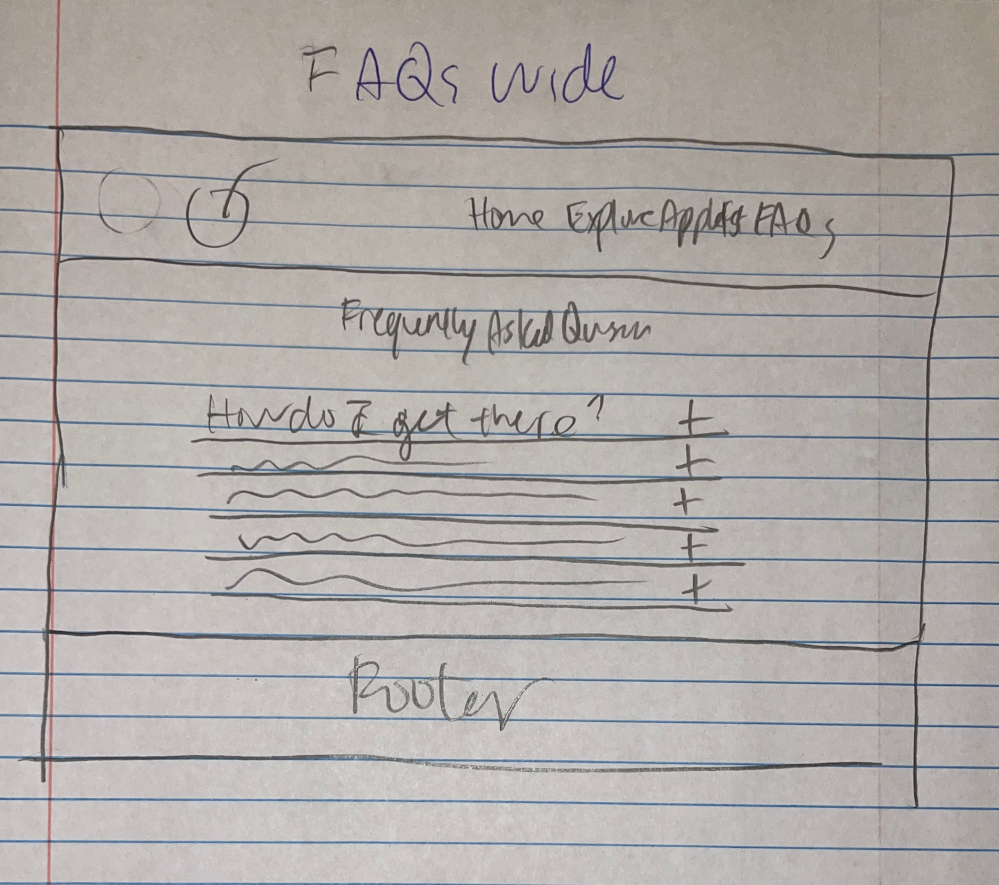 FAQs wide
Home Explore FAQs
Frequently Asked
How do I get there? +
+
+
+
+
Footer